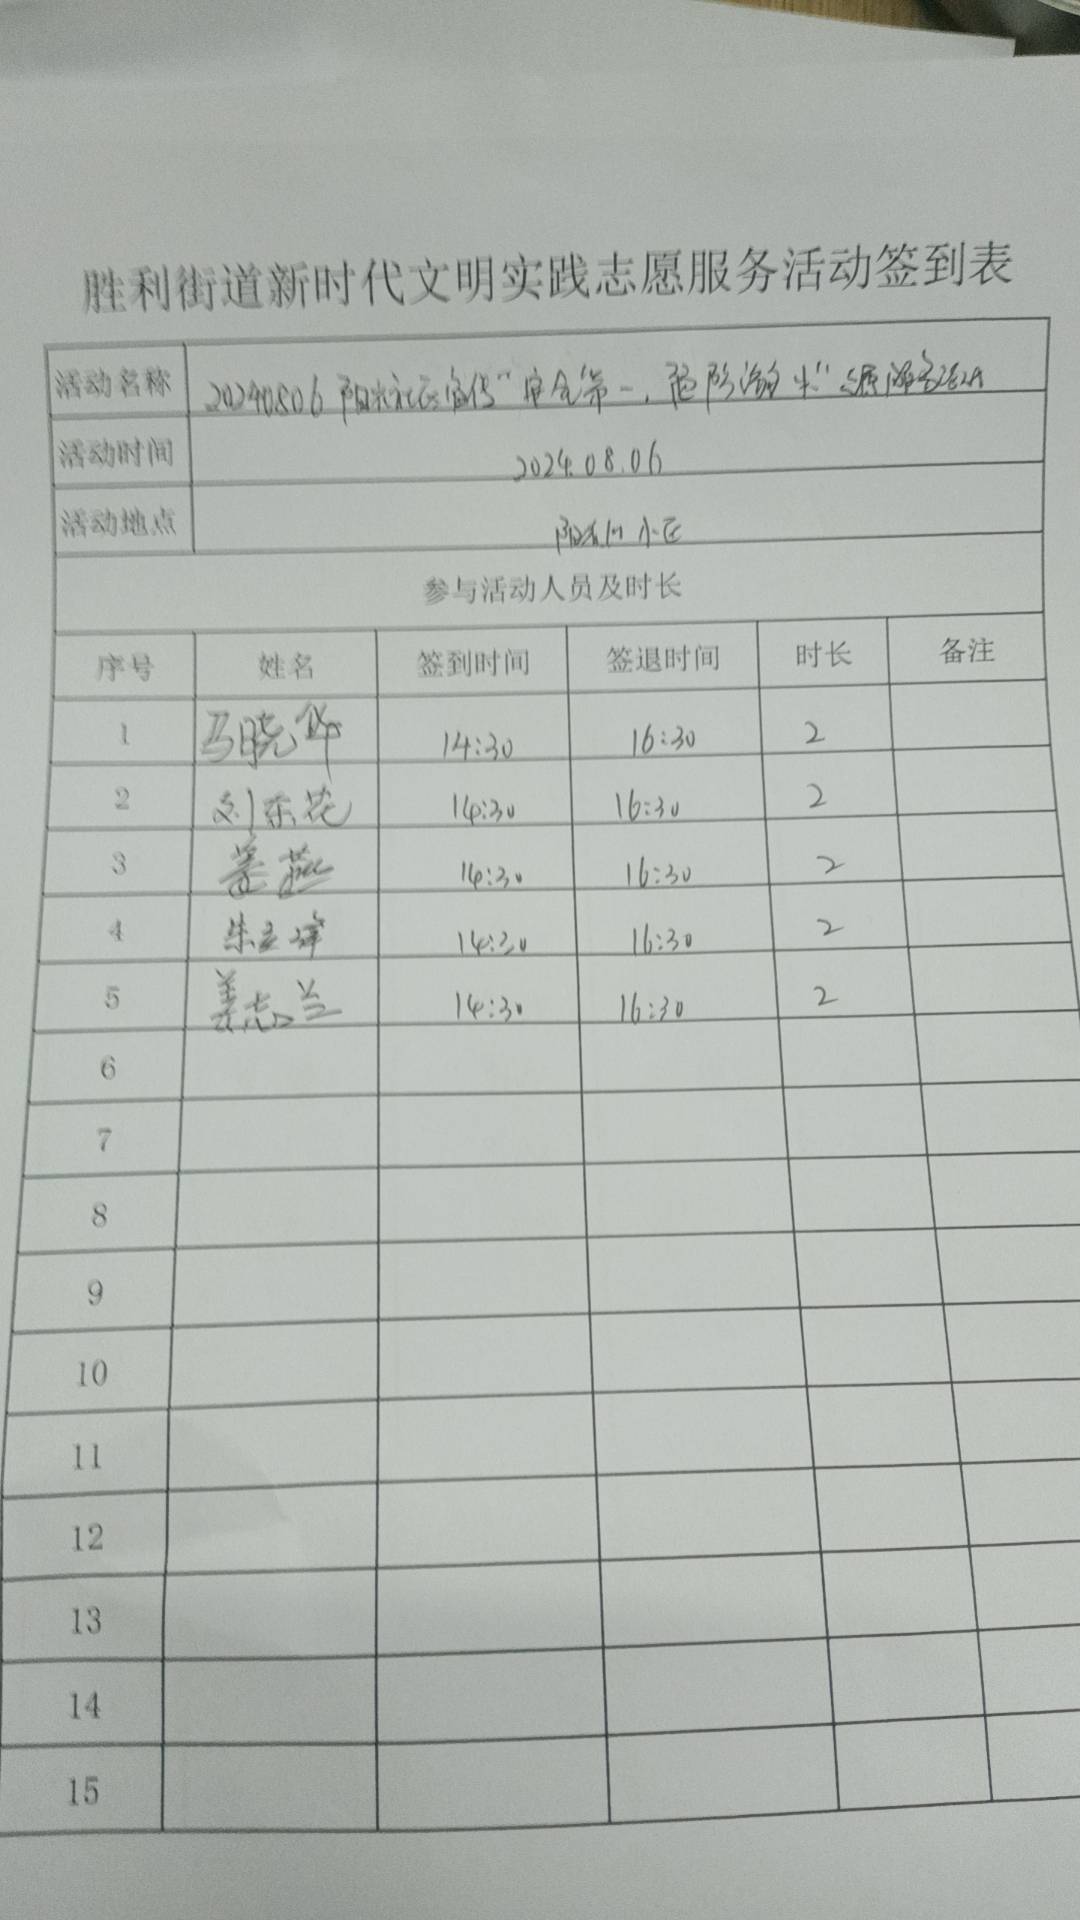 胜利街道新时代文明实践志愿服务活动签到表
活动名称 20240806 阳光社区宣传"安全第一,预防溺水"志愿服务活动
活动时间 2024.08.06
活动地点 小区
参与活动人员及时长
序号 姓名 签到时间 签退时间 时长 备注
1 马晓华 14:30 16:30 2
2 刘东花 14:30 16:30 2
3 姜燕 14:30 16:30 2
4 朱立 14:30 16:30 2
5 姜志兰 14:30 16:30 2
6
7
8
9
10
11
12
13
14
15